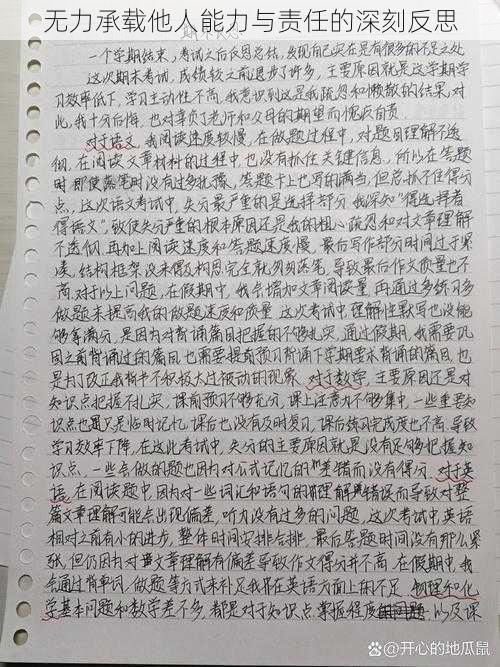 无力承载他人能力与责任的深刻反思
一个学期结束，考试之后反思总结，发现自己实在是有很多的不足之处
这次期末考试，成绩较之前退步了许多，主要原因就是这学期学
习效率低下，学习主动性不高，我意识到这是我疏忽和懒散的结果，对
此，我十分后悔，也对辜负了老师和父母的期望而愧疚自责
对于语文，我阅读速度较慢，在做题过程中，对题目理解不透
彻，在阅读文章材料的过程中，也没有抓住关键信息，所以在答题
时，即使落笔时没有过多犹豫，答题卡上也写的满当，但总抓不住得分
点，这次语文考试中，失分最严重的是选择部分，我深知“得选择者
得语文”，致使失分严重的根本原因还是我的粗心疏忽和对文章理解
不透彻，再加上阅读速度和答题速度慢，最后写作部分时间过于紧
凑，结构框架没来得及构思完全就匆匆落笔，导致最后作文质量也不
高，对于以上问题，在假期中，我会增加文章阅读量，再通过多练习多
做题来提高我的做题速度和质量，这次考试中理解性默写也没能
够拿满分，是因为对背诵篇目把握的不够扎实，通过假期，我需要巩
固之前背诵过的篇目，也需要提前预习背诵下学期要求背诵的篇目，也
是为了改正我背书不积极太过被动的现象，对于数学，主要原因还是对
知识点把握不扎实，课前预习不够充分，课上注意力不够集中，一些重要知
识点也只是临时记忆，课后也没有及时复习，课后练习完成度也不高，导致
学习效率下降，在这次考试中，失分的主要原因就是没有足够多把握知
识点，一些会做的题也因为对公式记忆的差错而没有得分，对于英
语，在阅读题中，因为对一些词汇和语句的理解错误而导致对整
篇文章理解可能会出现偏差，听力没有过多的问题，这次考试中，英语
相对之前有小的进步，整体时间安排合排，最后答题时间没有那么紧
张，但仍因为对文章理解有偏差导致作文得分并不高，在假期中，我
会通过背单词，做题等方式来补足我在英语方面上的不足，物理和化
学基本问题和数学差不多，都是对于知识点掌握程度，以及课
知乎 @开心的地瓜鼠